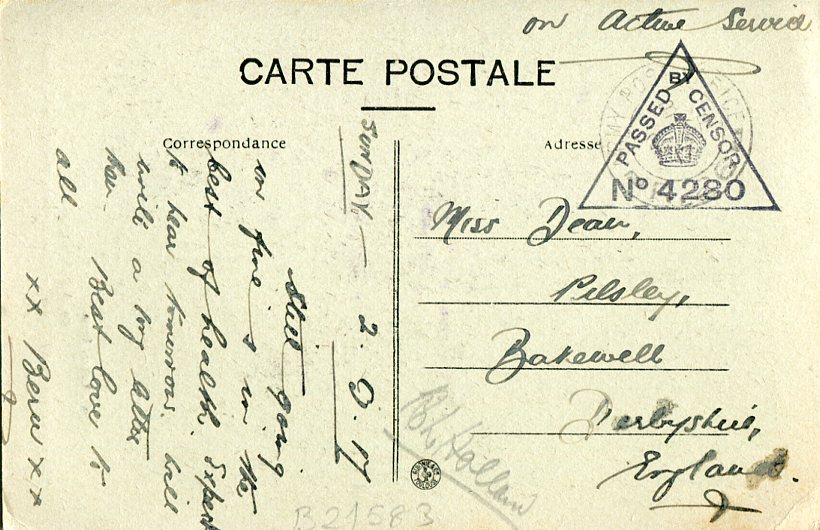 on Active Service
CARTE POSTALE
PASSED BY CENSOR
No 4280
Correspondance
Adresse
SUNDAY – 2.9.17
Still going
on fine & in the
best of health. Expect
to hear tomorrow. Will
write a long letter
then. Best love to
all.
xx Bern xx
Miss Dean,
Pilsley,
Bakewell
Derbyshire,
England.
Holland
B21583